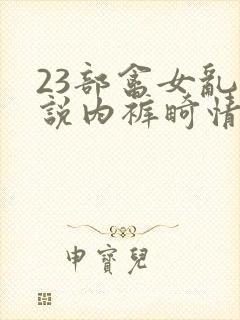 23部畜女乱
説内裤畸情
申寶兒